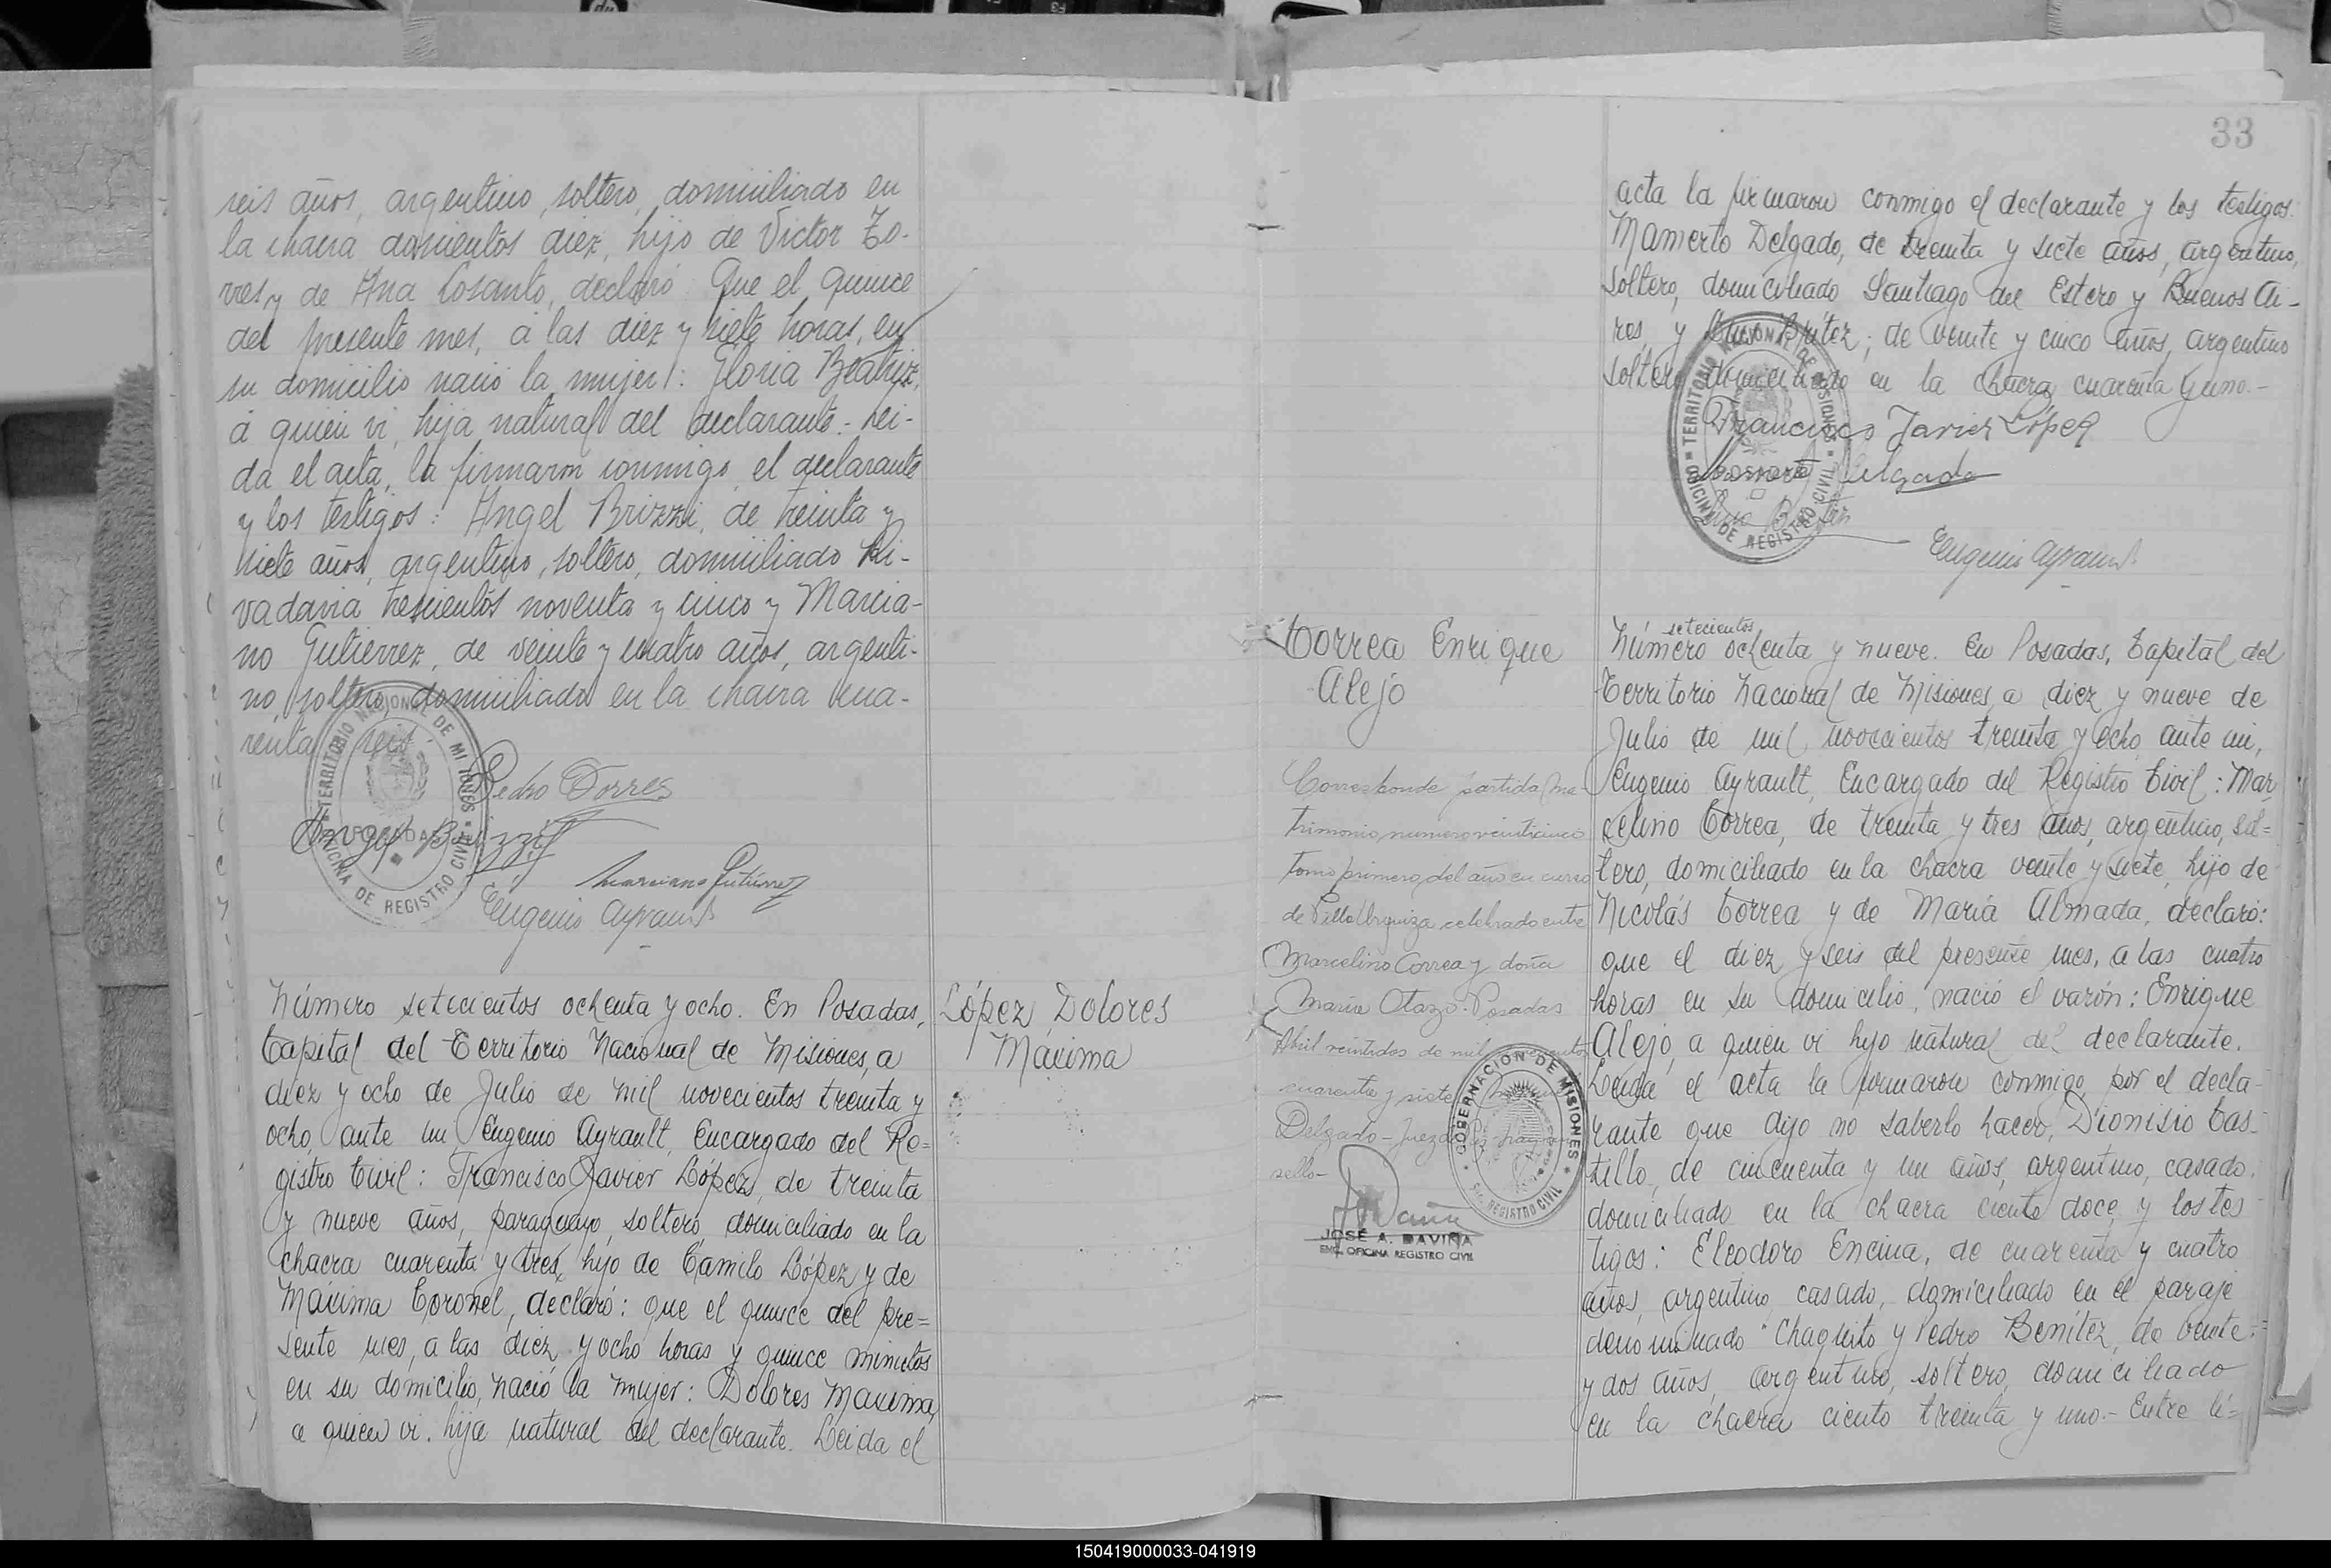 seis años, argentino, soltero, domiciliado en
la chacra doscientos diez, hijo de Victor To-
rres y de Ana Cosanto, declaró: Que el quince
del presente mes, a las diez y siete horas, en
su domicilio nació la mujer: Gloria Beatriz,
a quien vi, hija natural del declarante.- Lei-
da el acta, la firmaron conmigo el declarante
y los testigos: Angel Brizzi, de treinta y
siete años, argentino, soltero, domiciliado Ri-
vadavia trescientos noventa y cinco y Marcia-
no Gutierrez, de veinte y cuatro años, argenti-
no, soltero, domiciliado en la chacra cua-
renta y seis.
Pedro Torres
Angel Brizzi
Marciano Gutiérrez
Eugenio Ayrault
TERRITORIO NACIONAL DE MISIONES
POSADAS
OFICINA DE REGISTRO CIVIL
Número setecientos ochenta y ocho. En Posadas,
Capital del Territorio Nacional de Misiones, a
diez y ocho de Julio de mil novecientos treinta y
ocho, ante mi Eugenio Ayrault, Encargado del Re=
gistro Civil: Francisco Javier López, de treinta
y nueve años, paraguayo, soltero, domiciliado en la
chacra cuarenta y tres, hijo de Camilo López y de
Máxima Coronel, declaró: que el quince del pre=
sente mes, a las diez y ocho horas y quince minutos
en su domicilio, nació la mujer: Dolores Maxima,
a quien vi. hija natural del declarante. Leida el
López Dolores
Máxima
33
acta la firmaron conmigo el declarante y los testigos:
Mamerto Delgado, de treinta y siete años, argentino,
soltero, domiciliado Santiago del Estero y Buenos Ai-
res, y Britez, de veinte y cinco años, argentino
soltero domiciliado en la chacra cuarenta y uno.-
Francisco Javier López
Mamerto Delgado
Eugenio Ayrault
TERRITORIO NACIONAL DE MISIONES
POSADAS
OFICINA DE REGISTRO CIVIL
Correa Enrique
Alejo
Corresponde partida ma-
trimonio numero veinticinco
tomo primero del año en curso
de Villa Urquiza celebrado entre
Marcelino Correa y doña
María Otazo. Posadas
Abril veintidos de mil novecientos
cuarenta y siete
Delgado - Juez de Paz - hay un
sello-
GOBERNACION DE MISIONES
REGISTRO CIVIL
JOSÉ A. DAVIÑA
ENC. OFICINA REGISTRO CIVIL
setecientos
Número ochenta y nueve. En Posadas, Capital del
Territorio Nacional de Misiones, a diez y nueve de
Julio de mil novecientos treinta y ocho, ante mi,
Eugenio Ayrault, Encargado del Registro Civil: Mar
celino Correa, de treinta y tres años, argentino, sol=
tero, domiciliado en la chacra veinte y siete, hijo de
Nicolás Correa y de María Almada, declaró:
que el diez y seis del presente mes, a las cuatro
horas en su domicilio, nació el varón: Enrique
Alejo, a quien vi hijo natural del declarante.
Leida el acta la firmaron conmigo por el decla-
rante que dijo no saberlo hacer, Dionisio Cas-
tillo, de cincuenta y un años, argentino, casado,
domiciliado en la chacra ciento doce y los tes-
tigos: Eleodoro Encina, de cuarenta y cuatro
años, argentino, casado, domiciliado en el paraje
denominado "Chaquito y Pedro Benitez, de veinte=
y dos años, argentino, soltero, domiciliado
en la chacra ciento treinta y uno.- Entre li=
150419000033-041919